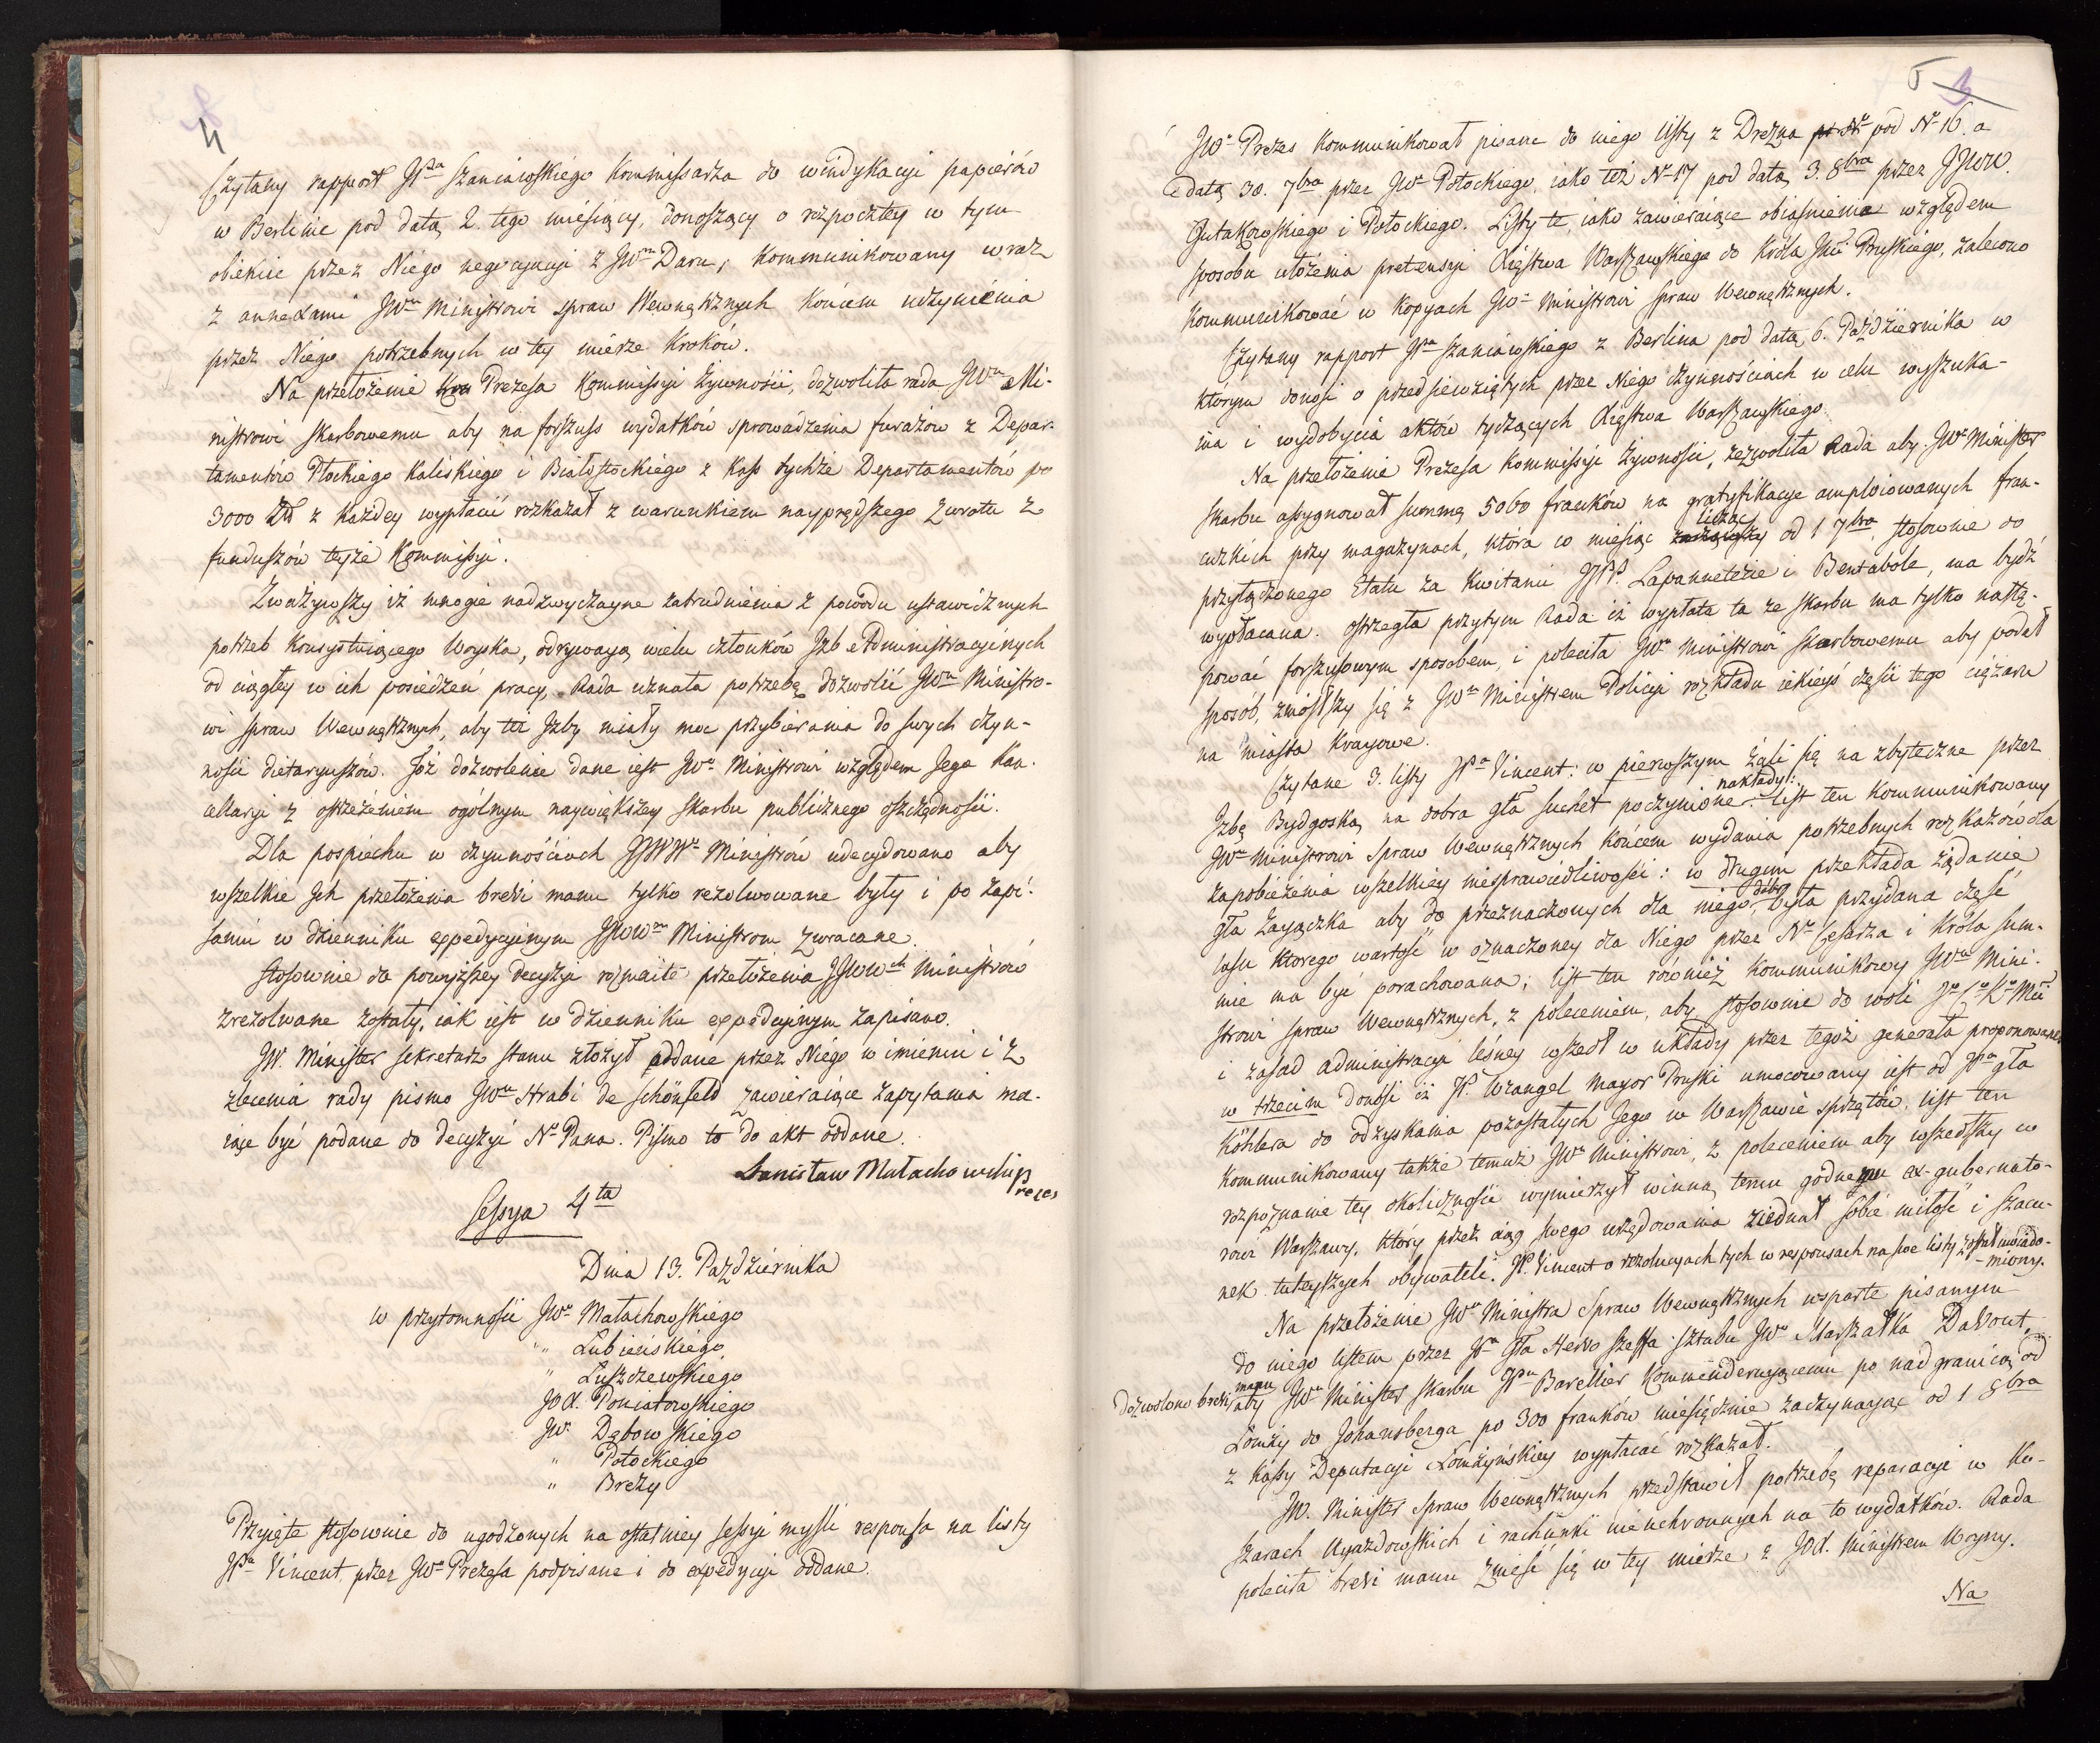 4
Czytany rapport JPa Szaniawskiego Kommissarza do windykacyi papierów
w Berlinie pod datą 2. tego miesiący, donoszący o rozpoczętey w tym
obiekcie przez Niego negocyacyi z JWm Daru, kommunikowany wraz
z annexami JWu Ministrowi spraw Wewnętrznych końcem uczynienia
przez Niego potrzebnych w tey mierze kroków.
Na przełożenie Prezesa Kommissyi Żywności, dozwoliła rada JWu Mi-
nistrowi skarbowemu aby na forszuss wydatków sprowadzenia furażow z Depar-
tamentów Płockiego Kaliskiego i Białostockiego z kass tychże Departamentów po
3000 Zł z każdey wypłacić rozkazał z warunkiem nayprędszego zwrotu z
funduszów tejże Kommissyi.
Zważywszy iż mnogie nadzwyczayne zatrudnienia z powodu ustawicznych
potrzeb konsystuiącego Woyska, odrywaią wielu członków Izb Administracyinych
od ciągłey w ich posiedzeń pracy, Rada uznała potrzebę dozwolić JWu Ministro-
wi spraw Wewnętrznych, aby też Izby miały moc przybierania do swych czyn-
ności dietaryuszów. Toż dozwolenie dane iest JWu Ministrowi względem Jego Kan-
cellaryi z ostrzeżeniem ogólnym naywiększey skarbu publicznego oszczędności.
Dla pospiechu w czynnościach JJWWch Ministrów udecydowano aby
wszelkie Ich przełożenia brevi manu tylko rezolwowane były i po zapi-
saniu w dzienniku expedycyinym JJWWm Ministrom zwracane.
Stosownie do powyższey decyzyi rozmaite przełożenia JJWWch Ministrów
zrezolwane zostały, iak iest w dzienniku expedycyinym zapisano.
JW. Minister sekretarz stanu złożył oddane przez Niego w imieniu i z
zlecenia rady pismo JWu Hrabi de Schönfeld zawieraiące zapytania ma-
iące być podane do decyzyi No Pana. Pismo to do akt oddane.
Stanisław Małachowski Prezes
Sessya 4ta
Dnia 13. Października
w przytomności JWo Małachowskiego
" Łubieńskiego
" Łuszczewskiego
JOX. Poniatowskiego
JW. Dąbowskiego
" Potockiego
" Brezy
Przyięte stosownie do ugodzonych na ostatniey sessyi myśli responsa na listy
JPa Vincent, przez JWo Prezesa podpisane i do expedycyi oddane.
5
JWo Prezes kommunikował pisane do niego listy z Drezna pod No 16. a
datą 30. 7bra przez JWo Potockiego, iako też No 17 pod datą 3. 8bra przez JJWW.
Gutakowskiego i Potockiego. Listy te, iako zawieraiące obiaśnienia względem
sposobu ułożenia pretensyi Xięstwa Warszawskiego do Króla Jmci Pruskiego, zalecono
kommunikować w kopyach JWu Ministrowi spraw Wewnętrznych.
Czytany rapport JPa Szaniawskiego z Berlina pod datą 6. Października w
którym donosi o przedsiewziętych przez Niego czynnościach w celu wyszuka-
nia i wydobycia aktów tyczących Xięstwa Warszawskiego.
Na przełożenie Prezesa Kommissyi Żywności, zezwoliła Rada aby JWu Minister
skarbu assygnował summę 5060 franków na gratyfikacye amploiowanych fran-
cuzkich przy magazynach, która co miesiąc licząc od 1 7bra, stosownie do
przyłączonego Etatu za kwitami JJPP. Lapanneterie i Bentabole, ma bydź
wypłacana. Ostrzegła przytym Rada iż wypłata ta ze skarbu ma tylko nastę-
pować forszusowym sposobem, i poleciła JWu Ministrowi Skarbowemu aby podał
sposób, zniósłszy się z JWm Ministrem Policyi rozkładu iekieyś części tego ciężaru
na miasta kraiowe.
Czytane 3. listy JPa Vincent: w pierwszym żali się na zbyteczne przez
Izbę Bydgoską na dobra Gła Suchet poczynione nakłady: list ten kommunikowany
JWu Ministrowi Spraw Wewnętrznych końcem wydania potrzebnych rozkazów dla
zapobieżenia wszelkiey niesprawiedliwości: w drugim przekłada żądanie
Gła Zaiączka aby do przeznaczonych dla niego dóbr była przydana część
lasu ktorego wartość w oznaczoney dla Niego przez No Cesarza i Króla sum-
mie ma być porachowana; list ten również kommunikowy JWu Mini-
strowi spraw Wewnętrznych, z poleceniem, aby stosownie do woli Jo Co Ko Mci
i zasad administracyi leśney wszedł w układy przez tegoż generała proponowane
w trzecim donosi iż JP. Wrangel Mayor Pruski umocowany iest od JPa Gła
Köhlera do odzyskania pozostałych Jego w Warszawie sprzętów, list ten
kommunikowany także temuż JWu Ministrowi, z poleceniem aby wszedłszy w
rozpoznanie tey okoliczności wymierzył winną temu godnemu ex-gubernato-
rowi Warszawy, który przez ciąg swego urzędowania ziednał sobie miłość i szacu-
nek tuteyszych obywateli. JP. Vincent o rezolucyach tych w responsach na swe listy został uwiado-
miony.
Na przełożenie JWo Ministra Spraw Wewnętrznych wsparte pisanym
do niego listem przez JPa Gła Hervo szeffa sztabu JWo Marszałka Davout,
dozwolono brevi manu aby JWu Minister skarbu JPu Barellier kommenderuiącemu po nad granicą od
Łomży do Johansberga po 300 franków miesięcznie zaczynaiąc od 1 8bra
z kassy Deputacyi Łomżyńskiey wypłacać rozkazał.
JW. Minister spraw Wewnętrznych przedstawił potrzebę reparacyi w Ko-
szarach Uiazdowskich i rachunki nieuchronnych na to wydatków. Rada
poleciła brevi manu znieść się w tey mierze z JOX. Ministrem Woyny.
Na